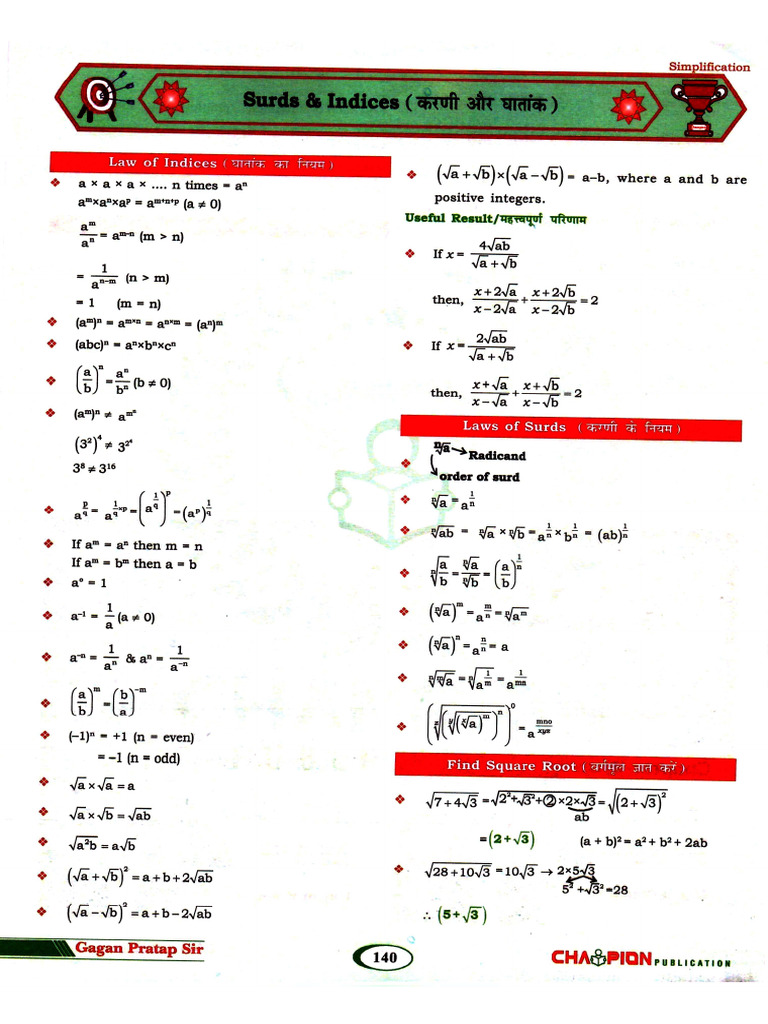 Simplification
Surds & Indices ( करणी और घातांक )
Law of Indices ( घातांक का नियम )
❖ a × a × a × .... n times = aⁿ
aᵐ×aⁿ×aᵖ = aᵐ⁺ⁿ⁺ᵖ (a ≠ 0)
aᵐ/aⁿ = aᵐ⁻ⁿ (m > n)
= 1/aⁿ⁻ᵐ (n > m)
= 1 (m = n)
❖ (aᵐ)ⁿ = aᵐˣⁿ = aⁿˣᵐ = (aⁿ)ᵐ
❖ (abc)ⁿ = aⁿ×bⁿ×cⁿ
❖ (a/b)ⁿ = aⁿ/bⁿ (b ≠ 0)
❖ (aᵐ)ⁿ ≠ a^(mⁿ)
(3²)⁴ ≠ 3^(2⁴)
3⁸ ≠ 3¹⁶
❖ a^(p/q) = a^(1/q × p) = (a^(1/q))^p = (aᵖ)^(1/q)
❖ If aᵐ = aⁿ then m = n
If aᵐ = bᵐ then a = b
❖ a° = 1
❖ a⁻¹ = 1/a (a ≠ 0)
❖ a⁻ⁿ = 1/aⁿ & aⁿ = 1/a⁻ⁿ
❖ (a/b)ᵐ = (b/a)⁻ᵐ
❖ (–1)ⁿ = +1 (n = even)
= –1 (n = odd)
❖ √a × √a = a
❖ √a × √b = √ab
❖ √(a²b) = a√b
❖ (√a + √b)² = a + b + 2√ab
❖ (√a − √b)² = a + b − 2√ab
❖ (√a + √b)×(√a − √b) = a–b, where a and b are
positive integers.
Useful Result/महत्त्वपूर्ण परिणाम
❖ If x = 4√ab/(√a + √b)
then, (x + 2√a)/(x − 2√a) + (x + 2√b)/(x − 2√b) = 2
❖ If x = 2√ab/(√a + √b)
then, (x + √a)/(x − √a) + (x + √b)/(x − √b) = 2
Laws of Surds ( करणी के नियम )
❖ ⁿ√a → Radicand
order of surd
❖ ⁿ√a = a^(1/n)
❖ ⁿ√ab = ⁿ√a × ⁿ√b = a^(1/n) × b^(1/n) = (ab)^(1/n)
❖ ⁿ√(a/b) = ⁿ√a/ⁿ√b = (a/b)^(1/n)
❖ (ⁿ√a)ᵐ = a^(m/n) = ⁿ√aᵐ
❖ (ⁿ√a)ⁿ = a^(n/n) = a
❖ ⁿ√ᵐ√a = ⁿ√(a^(1/m)) = a^(1/mn)
❖ (ᶻ√(ʸ√(ˣ√a)ᵐ)ⁿ)⁰ = a^(mno/xyz)
Find Square Root ( वर्गमूल ज्ञात करें )
❖ √(7 + 4√3) = √(2² + √3² + ②×2×√3) = √((2 + √3)²)
ab
= (2 + √3) (a + b)² = a² + b² + 2ab
❖ √(28 + 10√3) = 10√3 → 2×5√3
5² + √3² = 28
∴ (5 + √3)
Gagan Pratap Sir
140
CHAMPION PUBLICATION